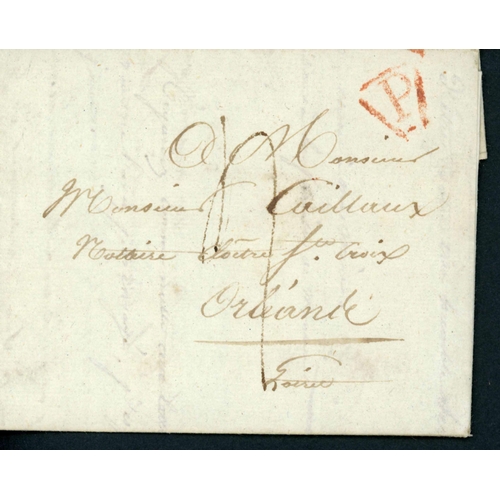 P
A Monsieur
Monsieur Caillaux
Nottaire Cloître Ste Croix
Orléands
Loiret